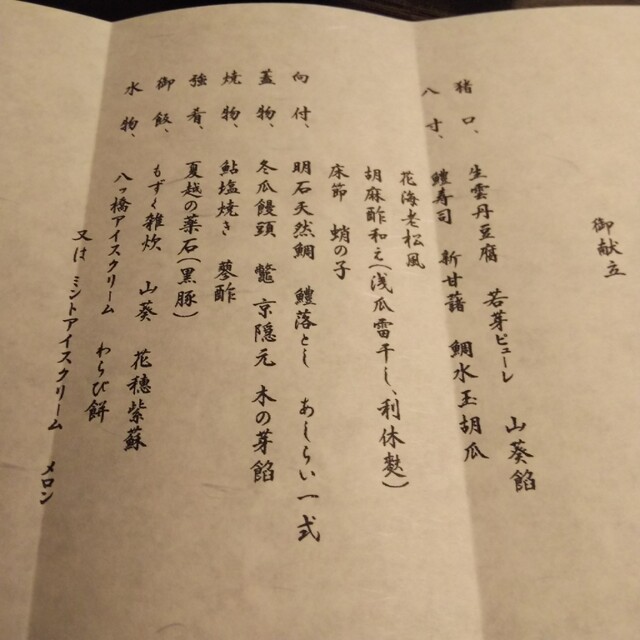 御献立
猪口、 生雲丹豆腐 若芽ピューレ 山葵餡
八寸、 鱧寿司 新甘藷 鯛水玉胡瓜
花海老松風
胡麻酢和え(浅瓜雷干し、利休麩)
床節 蛸の子
向付、 明石天然鯛 鱧落とし あしらい一式
蓋物、 冬瓜饅頭 鼈 京隠元 木の芽餡
焼物、 鮎塩焼き 蓼酢
強肴、 夏越の葉石(黒豚)
御飯、 もずく雑炊 山葵 花穂紫蘇
水物、 八ッ橋アイスクリーム わらび餅
又は ミントアイスクリーム メロン